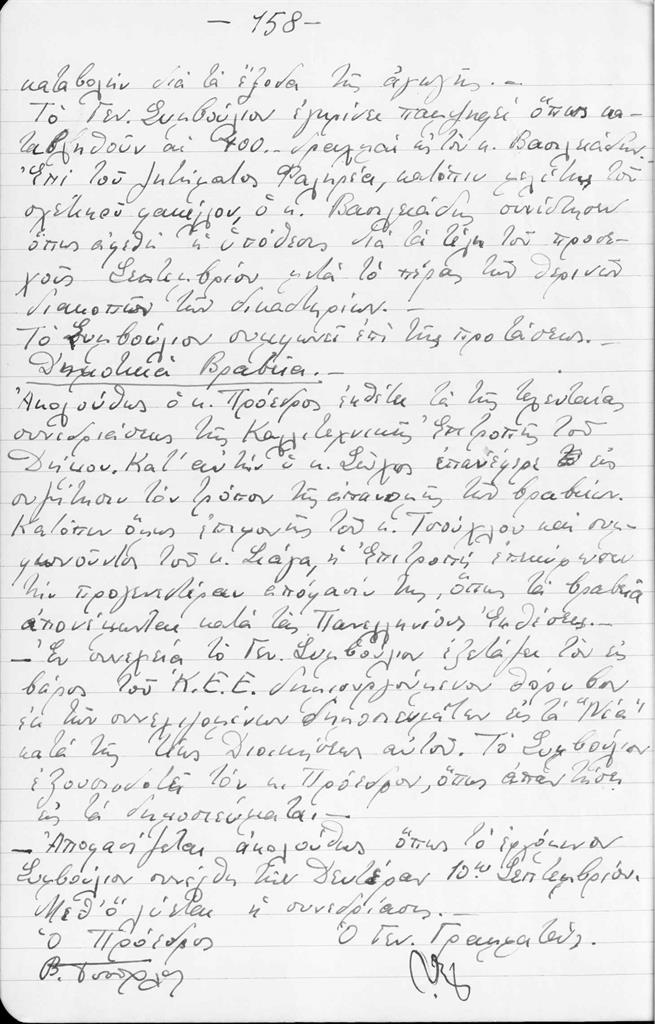 - 158 -
καταβολὴν διὰ τὰ ἔξοδα τῆς ἀγωγῆς. -
Τὸ Γεν. Συμβούλιον ἐγκρίνει παμψηφεὶ ὅπως κα-
ταβληθοῦν αἱ 400.- δραχμαὶ εἰς τὸν κ. Βασιλειάδην.
Ἐπὶ τοῦ ζητήματος Φαληρέα, κατόπιν μελέτης τοῦ
σχετικοῦ φακέλλου, ὁ κ. Βασιλειάδης συνέστησεν
ὅπως ἀφεθῇ ἡ ὑπόθεσις διὰ τὰ τέλη τοῦ προσε-
χοῦς Σεπτεμβρίου μετὰ τὸ πέρας τῶν θερινῶν
διακοπῶν τῶν δικαστηρίων. -
Τὸ Συμβούλιον συμφωνεῖ ἐπὶ τῆς προτάσεως. -
Δημοτικὰ Βραβεῖα. -
Ἀκολούθως ὁ κ. Πρόεδρος ἐκθέτει τὰ τῆς τελευταίας
συνεδριάσεως τῆς Καλλιτεχνικῆς Ἐπιτροπῆς τοῦ
Δήμου. Κατ' αὐτὴν ὁ κ. ἐπανέφερε εἰς
συζήτησιν τὸν τρόπον τῆς ἀπονομῆς τῶν βραβείων.
Κατόπιν ὅμως ἐπιμονῆς τοῦ κ. Τσούχλου καὶ συμ-
φωνοῦντος τοῦ κ. ἡ Ἐπιτροπὴ ἐπεκύρωσεν
τὴν προγενεστέραν ἀπόφασίν της, ὅπως τὰ βραβεῖα
ἀπονέμωνται κατὰ τὰς Πανελληνίους Ἐκθέσεις. -
- Ἐν συνεχείᾳ τὸ Γεν. Συμβούλιον ἐξετάζει τὸν εἰς
βάρος τοῦ Κ.Ε.Ε. δημιουργούμενον θόρυβον
ἐκ τῶν συνεχιζομένων δημοσιευμάτων εἰς τὰ "Νέα"
κατὰ τῆς Διοικήσεως αὐτοῦ. Τὸ Συμβούλιον
ἐξουσιοδοτεῖ τὸν κ. Πρόεδρον, ὅπως ἀπαντήσῃ
εἰς τὰ δημοσιεύματα. -
- Ἀποφασίζεται ἀκολούθως ὅπως τὸ ἐρχόμενον
Συμβούλιον συνέλθῃ τὴν Δευτέραν 10ην Σεπτεμβρίου.
Μεθ' ὃ λύεται ἡ συνεδρίασις. -
Ὁ Πρόεδρος Ὁ Γεν. Γραμματεύς.
Β. Τσούχλος